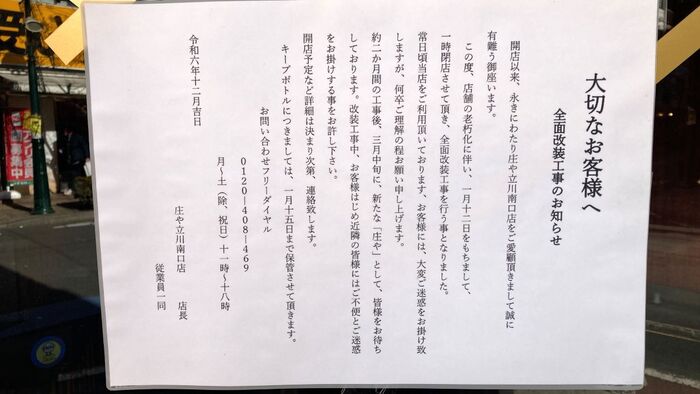 大切なお客様へ
全面改装工事のお知らせ
開店以来、永きにわたり庄や立川南口店をご愛顧頂きまして誠に
有難う御座います。
この度、店舗の老朽化に伴い、一月十二日をもちまして、
一時閉店させて頂き、全面改装工事を行う事となりました。
常日頃当店をご利用頂いております、お客様には、大変ご迷惑をお掛け致
しますが、何卒ご理解の程お願い申し上げます。
約二か月間の工事後、三月中旬に、新たな「庄や」として、皆様をお待ち
しております。改装工事中、お客様はじめ近隣の皆様にはご不便とご迷惑
をお掛けする事をお許し下さい。
開店予定など詳細は決まり次第、連絡致します。
キープボトルにつきましては、一月十五日まで保管させて頂きます。
お問い合わせフリーダイヤル
0120―408―469
月～土（除、祝日）十一時～十八時
令和六年十二月吉日
庄や立川南口店 店長
従業員一同